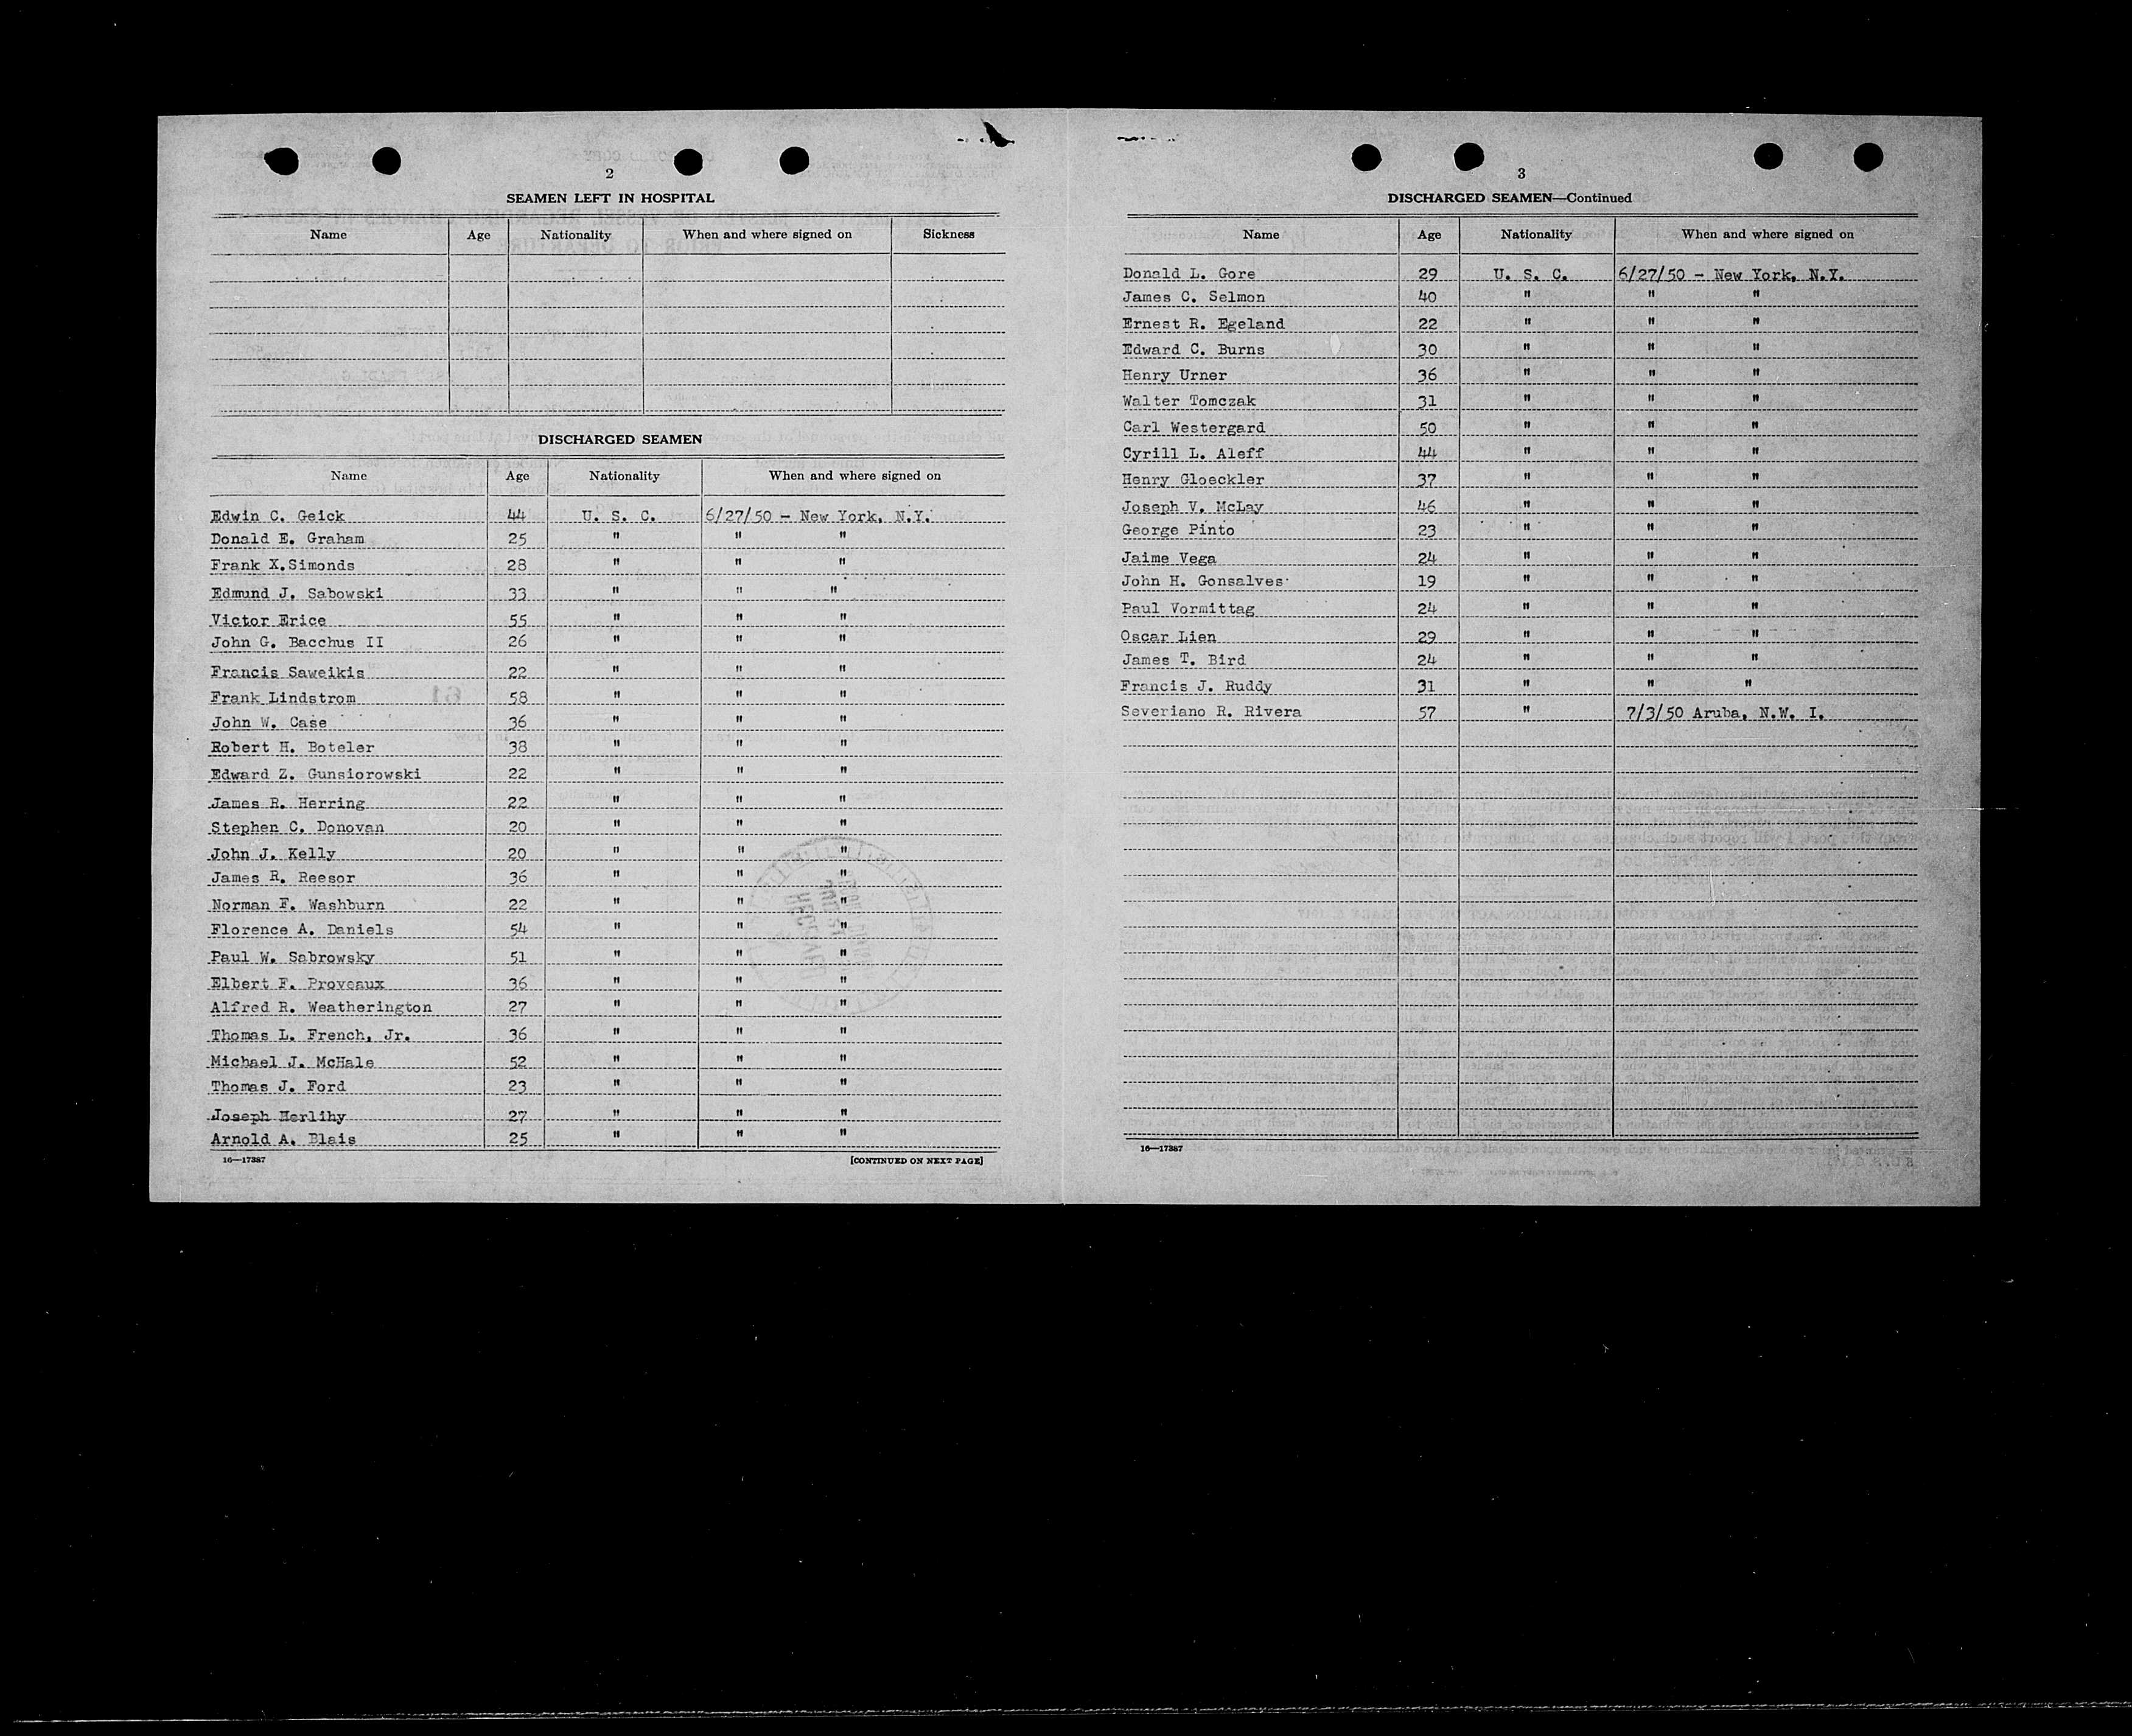 2
SEAMEN LEFT IN HOSPITAL
Name Age Nationality When and where signed on Sickness
DISCHARGED SEAMEN
Name Age Nationality When and where signed on
Edwin C. Geick 44 U. S. C. 6/27/50 - New York, N.Y.
Donald E. Graham 25 " " "
Frank X.Simonds 28 " " "
Edmund J. Sabowski 33 " " "
Victor Erice 55 " " "
John G. Bacchus II 26 " " "
Francis Saweikis 22 " " "
Frank Lindstrom 58 " " "
John W. Case 36 " " "
Robert H. Boteler 38 " " "
Edward Z. Gunsiorowski 22 " " "
James R. Herring 22 " " "
Stephen C. Donovan 20 " " "
John J. Kelly 20 " " "
James R. Reesor 36 " " "
Norman F. Washburn 22 " " "
Florence A. Daniels 54 " " "
Paul W. Sabrowsky 51 " " "
Elbert F. Proveaux 36 " " "
Alfred R. Weatherington 27 " " "
Thomas L. French, Jr. 36 " " "
Michael J. McHale 52 " " "
Thomas J. Ford 23 " " "
Joseph Herlihy 27 " " "
Arnold A. Blais 25 " " "
16—17387 [CONTINUED ON NEXT PAGE]
3
DISCHARGED SEAMEN—Continued
Name Age Nationality When and where signed on
Donald L. Gore 29 U. S. C. 6/27/50 - New York, N.Y.
James C. Selmon 40 " " "
Ernest R. Egeland 22 " " "
Edward C. Burns 30 " " "
Henry Urner 36 " " "
Walter Tomczak 31 " " "
Carl Westergard 50 " " "
Cyrill L. Aleff 44 " " "
Henry Gloeckler 37 " " "
Joseph V. McLay 46 " " "
George Pinto 23 " " "
Jaime Vega 24 " " "
John H. Gonsalves 19 " " "
Paul Vormittag 24 " " "
Oscar Lien 29 " " "
James T. Bird 24 " " "
Francis J. Ruddy 31 " " "
Severiano R. Rivera 57 " 7/3/50 Aruba, N.W. I.
16—17387